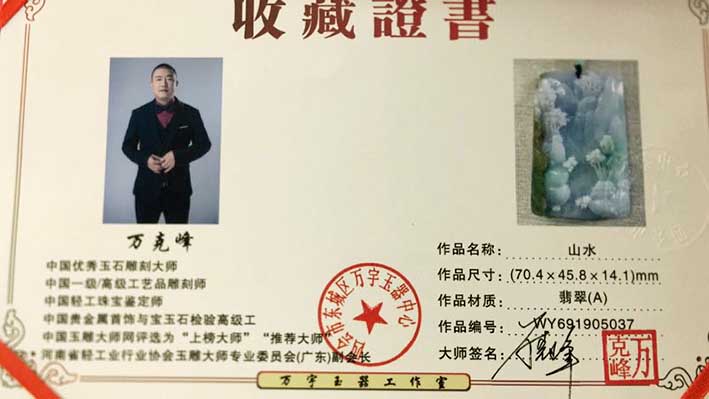 收藏證書
万克峰
中国优秀玉石雕刻大师
中国一级/高级工艺品雕刻师
中国轻工珠宝鉴定师
中国贵金属首饰与宝玉石检验高级工
中国玉雕大师网评选为“上榜大师” “推荐大师”
河南省轻工业行业协会玉雕大师专业委员会(广东)副会长
四会市东城区万宇玉器中心
作品名称: 山水
作品尺寸: (70.4×45.8×14.1)mm
作品材质: 翡翠(A)
作品编号: WY691905037
大师签名: 万克峰
万克峰
万宇玉器工作室